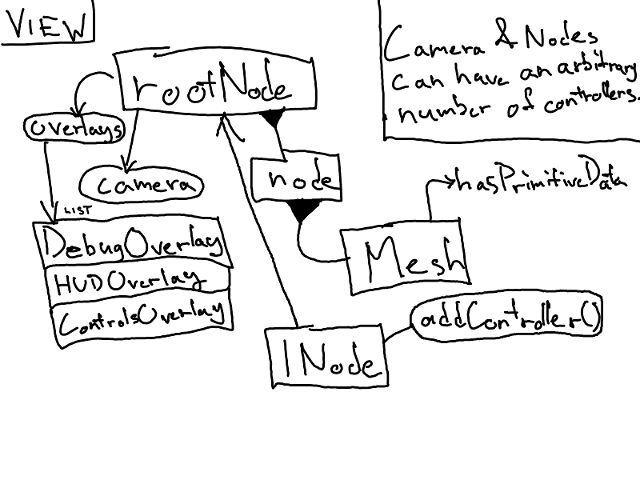 VIEW
rootNode
Camera & Nodes
can have an arbitrary
number of controllers.
overlays
camera
node
hasPrimitiveData
LIST
DebugOverlay
HUDOverlay
ControlsOverlay
Mesh
addController()
INode